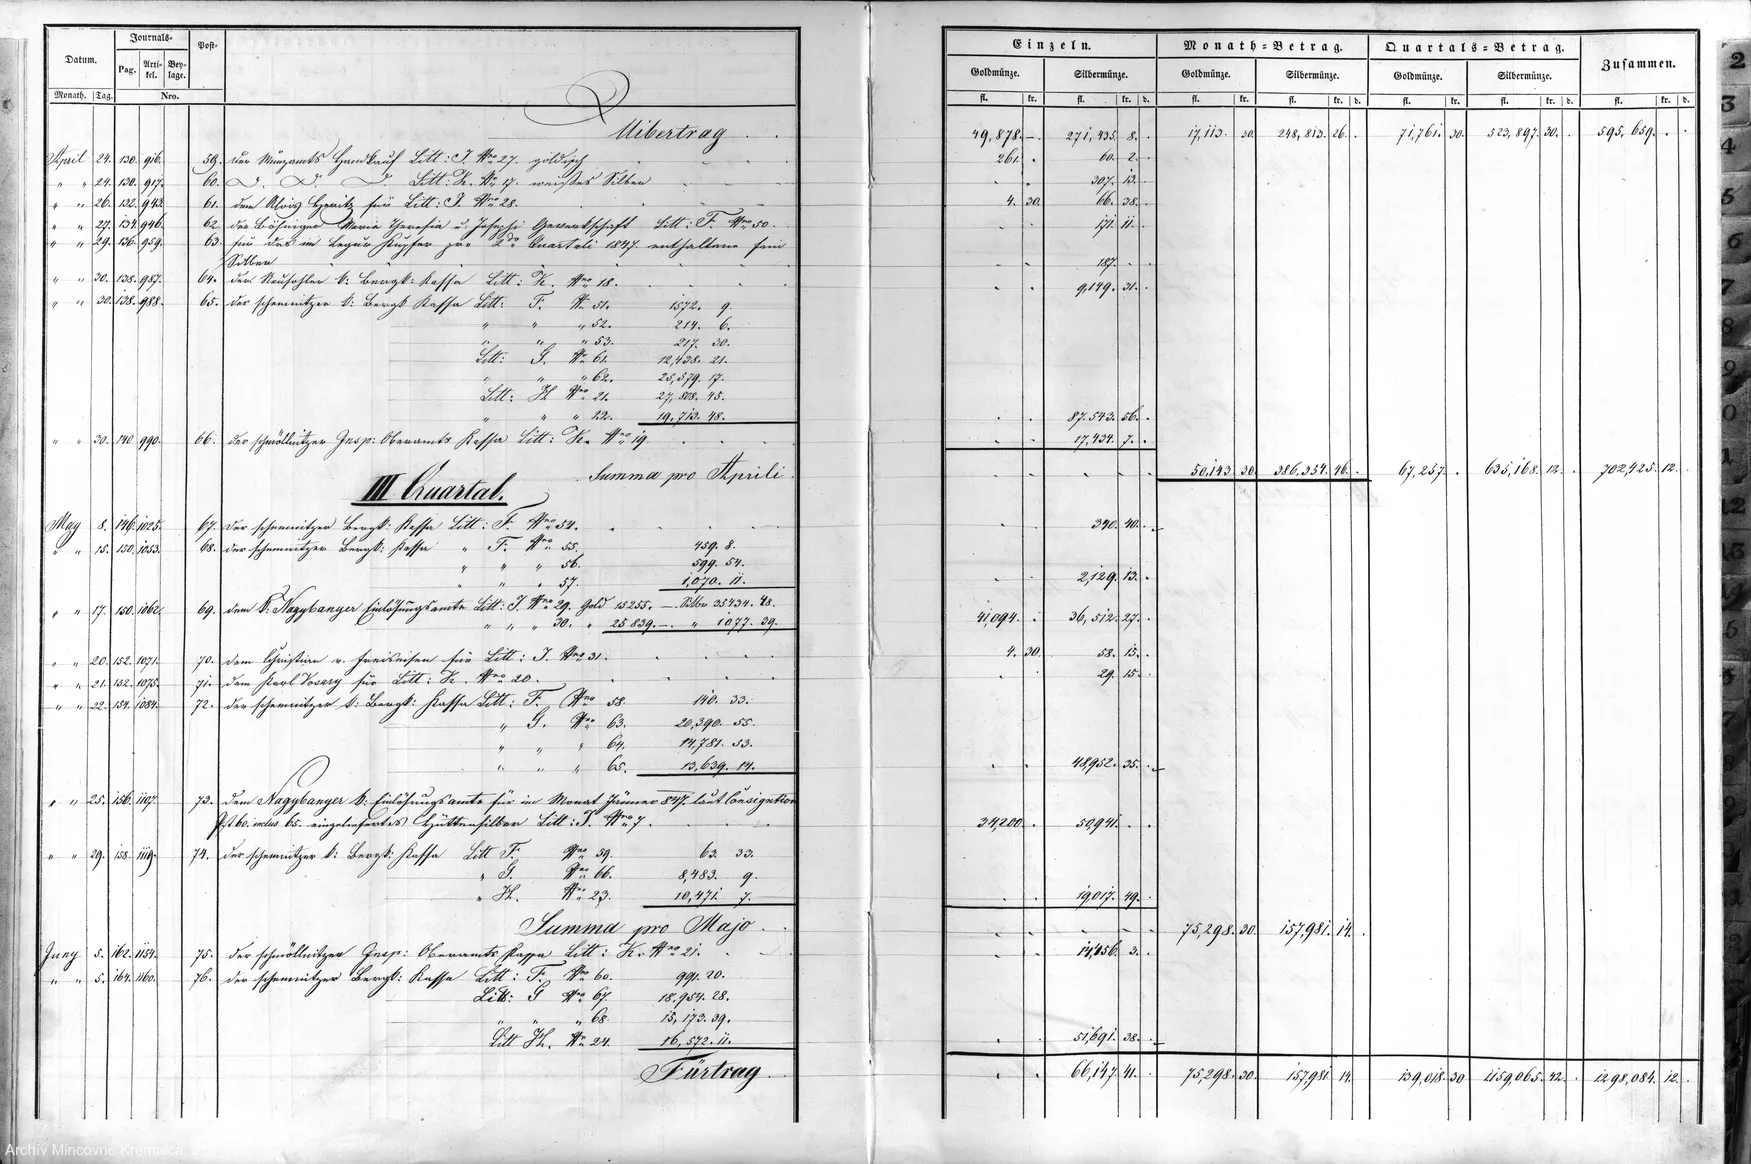 Datum. Journals= Post=
Pag. Arti=kel. Bey=lage.
Monath. Tag. Nro.
Einzeln. Monath=Betrag. Quartals=Betrag. Zusammen.
Goldmünze. Silbermünze. Goldmünze. Silbermünze. Goldmünze. Silbermünze.
fl. kr. fl. kr. d. fl. kr. fl. kr. d. fl. kr. fl. kr. d. fl. kr. d.
Uibertrag 49,878. – 271,435. 8. 17,113. 30. 248,813. 26. 71,761. 30. 523,897. 30. 595,659.
April 24. 130. 916. 59. der Münzamts Handkauf Litt: J. Nro 27. göldisch 261. 60. 2.
" " 24. 130. 917. 60. D. D. D. Litt: K. Nro 17. weißes Silber 307. 13.
" " 26. 132. 943. 61. dem Alois für Litt: J. Nro 28. 4. 30. 66. 38.
" " 27. 134. 946. 62. der Maria Theresia u. Josephi Gewerkschaft Litt: F. Nro 50. 171. 11.
" " 29. 136. 959. 63. für das im Kupfer pro 2do Quartali 1847. enthaltene fein
Silber 187.
" " 30. 138. 987. 64. der Neusohler k: Bergk: Kassa Litt: K. Nro 18. 9,149. 31.
" " 30. 138. 988. 65. der schemnitzer k: Bergk Kassa Litt: F. Nro 51. 1572. 9.
" " " 52. 214. 6.
" " " 53. 217. 30.
Litt: G. Nro 61. 12,438. 21.
" " " 62. 25,579. 17.
Litt: H Nro 21. 27,808. 45.
" " " 22. 19,713. 48. 87,543. 56.
" " 30. 140. 990. 66. der schmöllnitzer Insp: Oberamts Kassa Litt: K. Nro 19. 17,434. 7.
Summa pro Aprili 50,143. 30. 386,354. 46. 67,257. 635,168. 12. 702,425. 12.
III Quartal.
May 8. 146. 1025. 67. der schemnitzer Bergk: Kassa Litt: F. Nro 54. 340. 40.
" " 15. 150. 1053. 68. der schemnitzer Bergk: Kassa " F. Nro 55. 459. 8.
" " " 56. 599. 54.
" " " 57. 1,070. 11. 2,129. 13.
" " 17. 150. 1062. 69. dem k: Nagybanyer Einlösungsamte Litt: J. Nro 29. Gold 15255. — Silber 35434. 48.
" " " 30. " 25839. — " 1077. 39. 41,094. 36,512. 27.
" " 20. 152. 1071. 70. dem Christian v. Freiseisen für Litt: J. Nro 31. 4. 30. 58. 15.
" " 21. 152. 1075. 71. dem Karl für Litt: K. Nro 20. 29. 15.
" " 22. 154. 1084. 72. der schemnitzer k: Bergk: Kassa Litt: F. Nro 58. 140. 33.
" G. Nro 63. 20,390. 55.
" " " 64. 14,781. 53.
" " " 65. 13,639. 14. 48,952. 35.
" " 25. 156. 1107. 73. dem Nagybanyer k: Einlösungsamte für im Monat Jänner 847. laut Consignation
Post 60. inclus 65. eingeliefertes Hüttensilber Litt: J. Nro 7. 34,200. 50,941.
" " 29. 158. 1119. 74. der schemnitzer k: Bergk: Kassa Litt F. Nro 59. 63. 33.
" G. Nro 66. 8,483. 9.
" H. Nro 23. 10,471. 7. 19,017. 49.
Summa pro Majo 75,298. 30. 157,981. 14.
Juny 5. 162. 1154. 75. der schmöllnitzer Insp: Oberamts Kassa Litt: K. Nro 21. 14,456. 3.
" " 5. 164. 1160. 76. der schemnitzer Bergk: Kassa Litt: F. Nro 60. 991. 20.
Litt: G Nro 67. 18,954. 28.
" " " 68. 15,173. 39.
Litt H. Nro 24. 16,572. 11. 51,691. 38.
Fürtrag 66,147. 41. 75,298. 30. 157,981. 14. 139,018. 30 1159,065. 42. 1298,084. 12.
Archív Mincovne Kremnica,
2
3
4
5
6
7
8
9